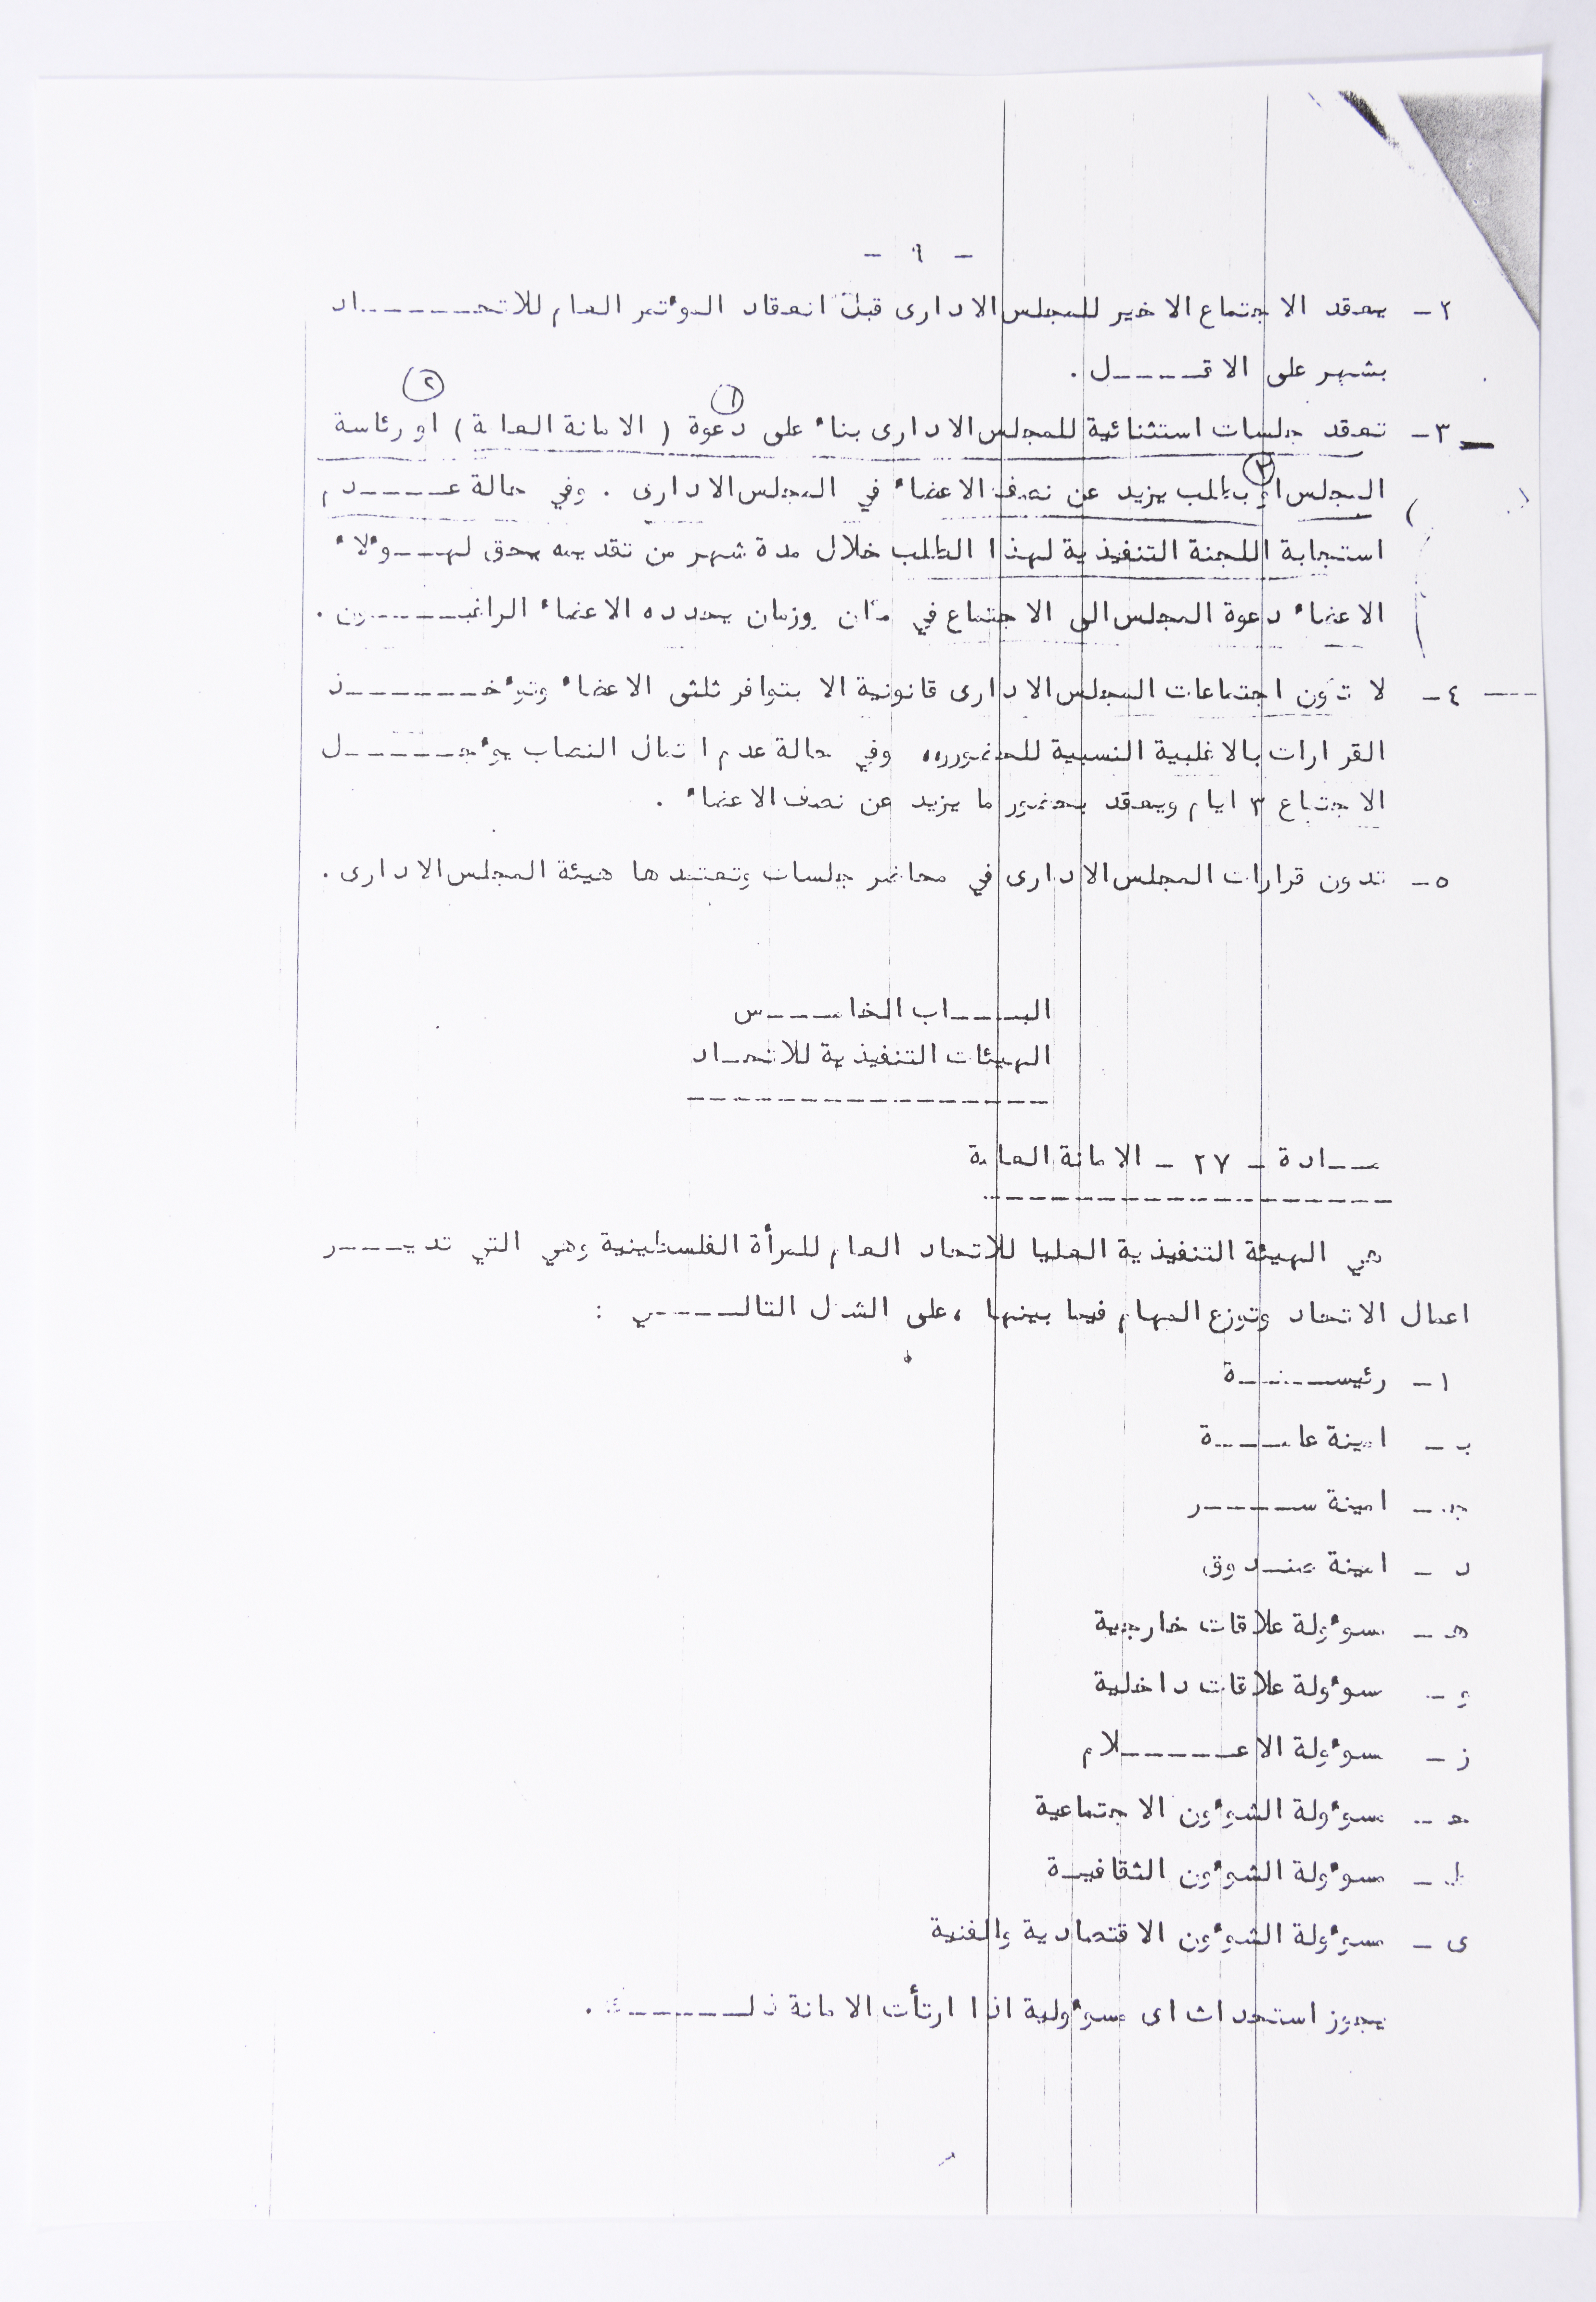 - ٩ -
٢- يعقد الاجتماع الاخير للمجلس الادارى قبل انعقاد المؤتمر العام للاتحـــــــاد
بشهر على الاقـــــل .
٢
١
٣- تعقد جلسات استثنائية للمجلس الادارى بناء على دعوة ( الامانة العامة ) او رئاسة
٣
المجلس او بطلب يزيد عن نصف الاعضاء في المجلس الادارى . وفي حالة عـــــدم
استجابة اللجنة التنفيذية لهذا الطلب خلال مدة شهر من تقديمه يحق لهـــؤلاء
الاعضاء دعوة المجلس الى الاجتماع في مكان وزمان يحدده الاعضاء الراغبـــــــون .
٤- لا تكون اجتماعات المجلس الادارى قانونية الا بتوافر ثلثى الاعضاء وتؤخـــــــذ
القرارات بالاغلبية النسبية للحضور،، وفي حالة عدم اكتمال النصاب يؤجــــــل
الاجتماع ٣ ايام ويعقد بحضور ما يزيد عن نصف الاعضاء .
٥- تدون قرارات المجلس الادارى في محاضر جلسات وتعتمدها هيئة المجلس الادارى .
البـــــاب الخامـــــس
الهيئات التنفيذية للاتحـاد
مـــادة - ٢٧ - الامانة العامة
هي الهيئة التنفيذية العليا للاتحاد العام للمرأة الفلسطينية وهي التي تديـــــر
اعمال الاتحاد وتوزع المهام فيما بينها ، على الشكل التالـــــي :
ا- رئيســـــــة
ب - امينة عامـــــة
جـ - امينة ســـــــر
د - امينة صنـدوق
هـ - مسؤولة علاقات خارجية
و - مسؤولة علاقات داخلية
ز - مسؤولة الاعــــــــلام
حـ - مسؤولة الشؤون الاجتماعية
ط - مسؤولة الشؤون الثقافيـة
ى - مسؤولة الشؤون الاقتصادية والفنية
يجوز استحداث اى مسؤولية اذا ارتأت الامانة ذلـــــــك .